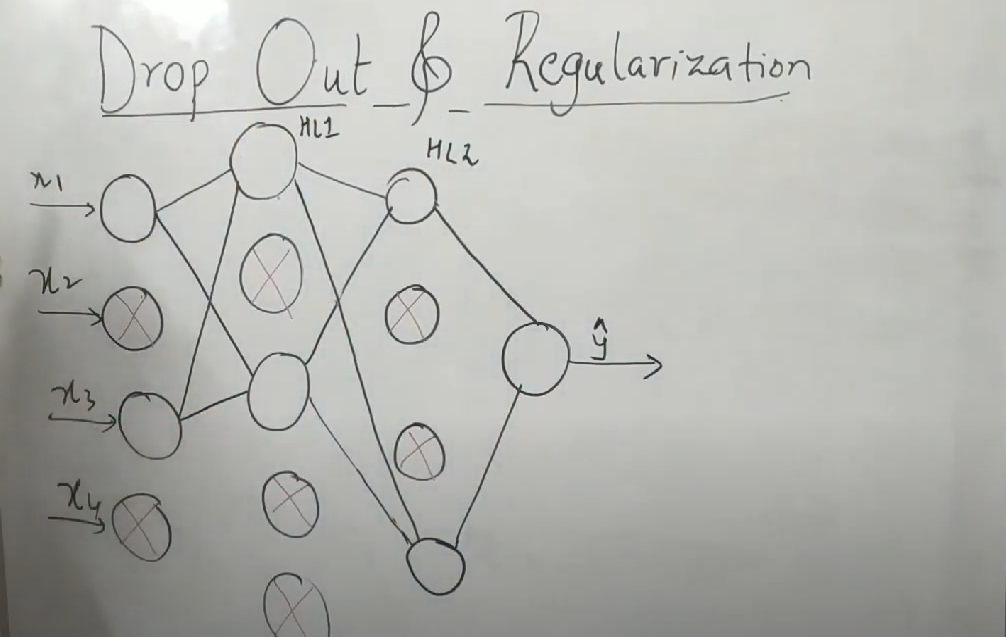 Drop Out & Regularization
HL1
HL2
x1
x2
x3
x4
ŷ